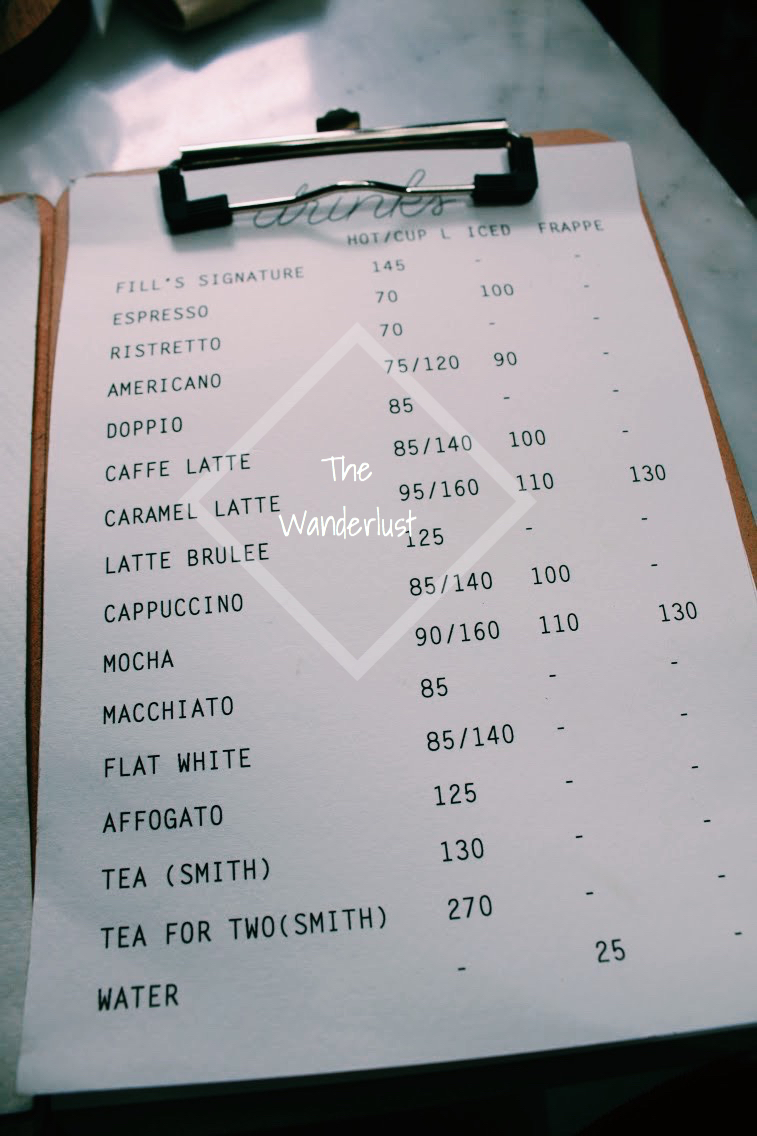 drinks
HOT/CUP L ICED FRAPPE
FILL'S SIGNATURE 145 - -
ESPRESSO 70 100 -
RISTRETTO 70 - -
AMERICANO 75/120 90 -
DOPPIO 85 - -
CAFFE LATTE 85/140 100 -
CARAMEL LATTE 95/160 110 130
LATTE BRULEE 125 - -
CAPPUCCINO 85/140 100 -
MOCHA 90/160 110 130
MACCHIATO 85 - -
FLAT WHITE 85/140 - -
AFFOGATO 125 - -
TEA (SMITH) 130 - -
TEA FOR TWO(SMITH) 270 - -
WATER - 25 -
The
Wanderlust